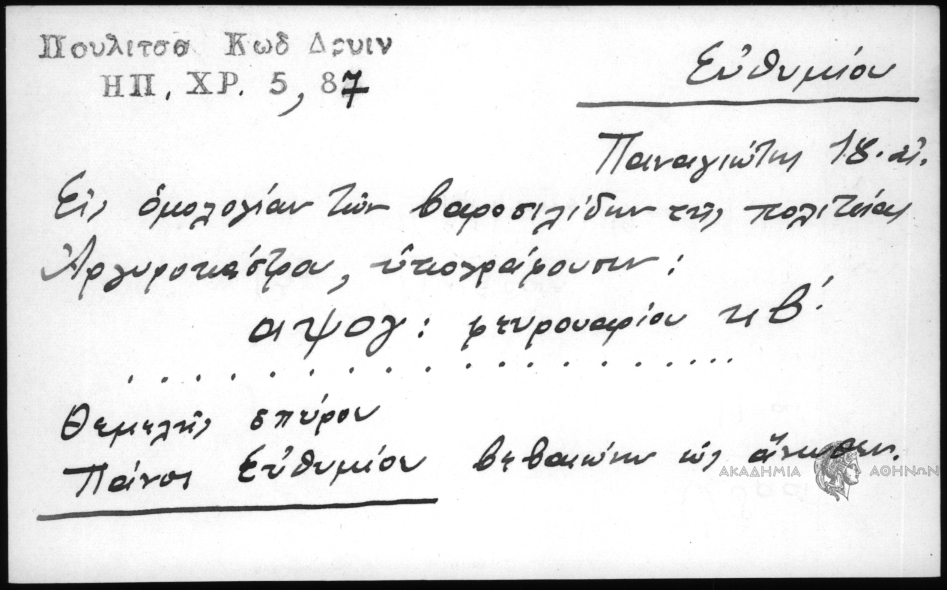 Πουλιτσα Κωδ Δρυιν
ΗΠ. ΧΡ. 5, 87
Εὐθυμίου
Παναγιώτης 18. αἰ.
Εἰς ὁμολογίαν τῶν βαροσιλίδων τῆς πολιτείας
Ἀργυροκάστρου, ὑπογράφουσιν:
αψογ: φευρουαρίου κβ΄
. . . . . . . . . . . . . . . . . .
Θεμελῆς σπύρου
Πάνος Εὐθυμίου βεβαιώνω ὡς ἄνωθεν.
ΑΚΑΔΗΜΙΑ ΑΘΗΝΩΝ